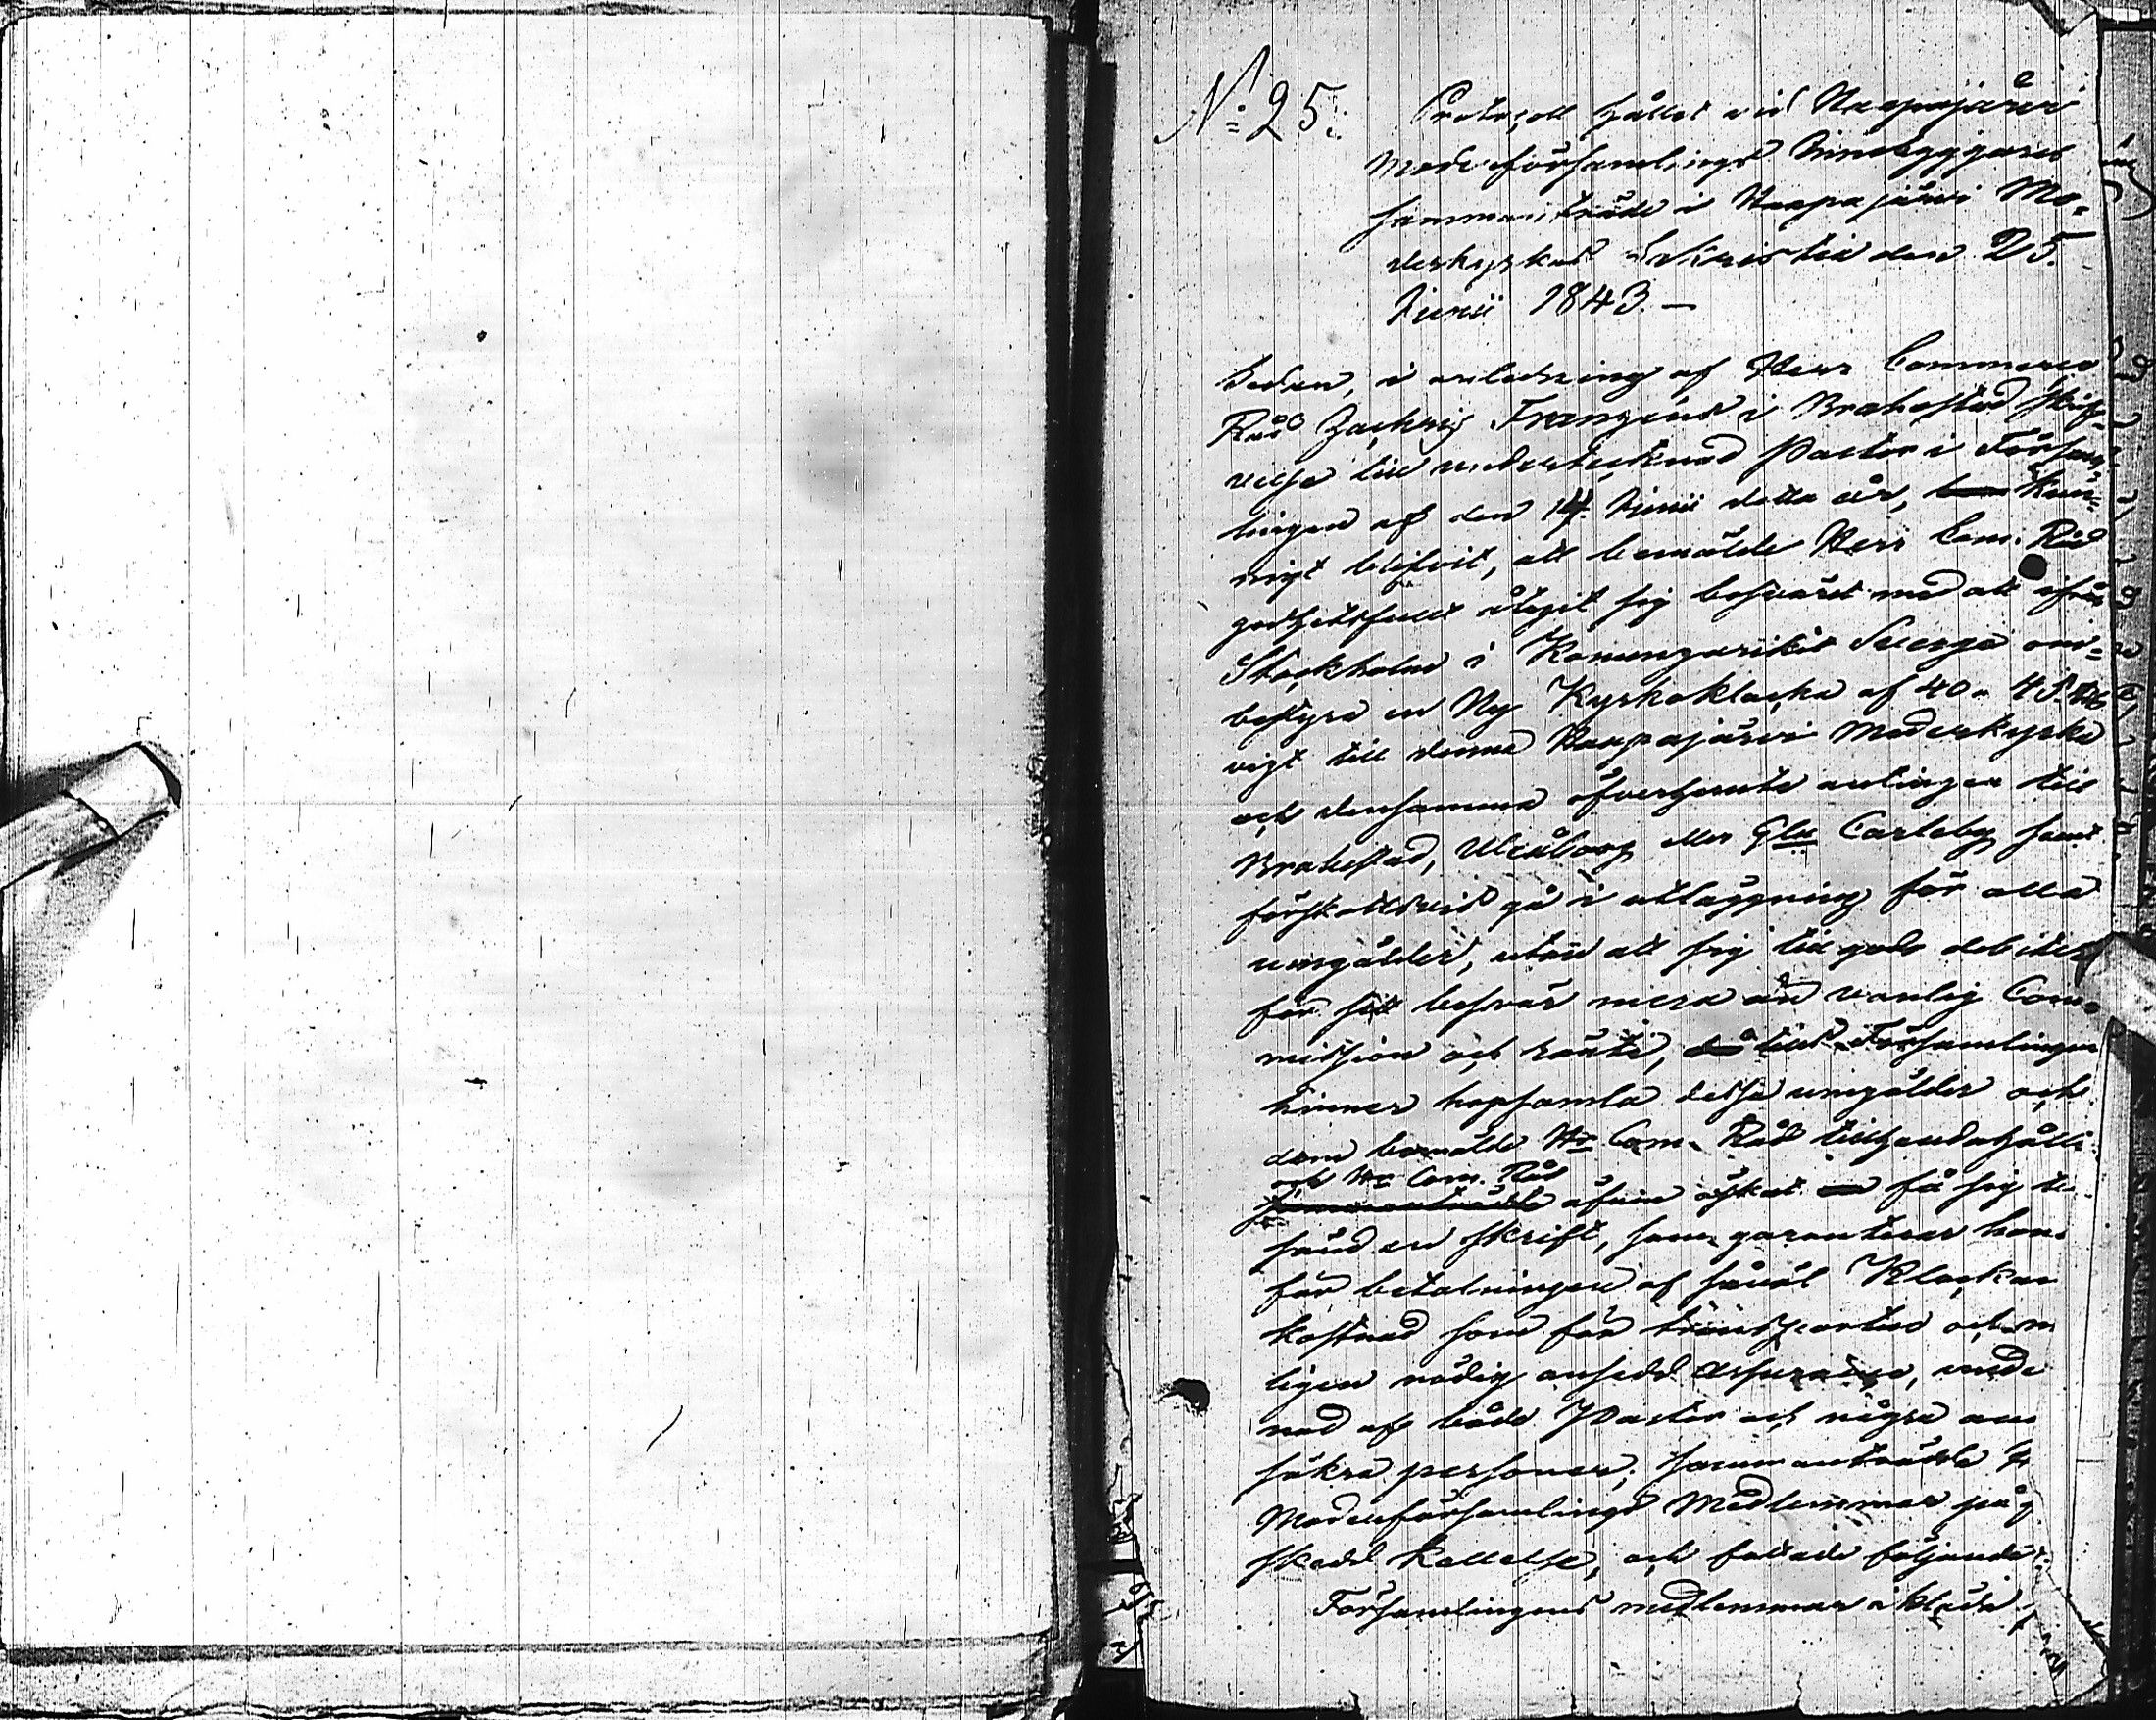 N:o 25.
Protocoll hållet vid Haapajärvi
Moderförsamlings Innebyggares
sammanträde i Haapajärvi Mo-
derkyrkas Sakristia den 25.
Junii 1843. —
Sedan, i anledning af Herr Commerce
Råd Zachris Franzéns i Brahestad skrif-
velse till undertecknad Pastor i Försam-
lingen af den 14. Junii detta år, kun-
nigt blifvit, att bemälde Herr Com. Råd
godhetsfullt åtagit sig besväret med att ifrån
Stockholm i Konungariket Sverge om-
bestyra en Ny Kyrkoklocka af 40 a 45.
vigt till denna Haapajärvi Moderkyrka
och densamma öfversända antingen till
Brahestad, Uleåborg eller Gla Carleby samt
förskottsvis gå i utläggning för alla
umgälder, utan att sig till godo debitera
för sitt besvär mera än vanlig Com-
mission och ränta, till Församlingen
hinner hopsamla dessa umgälder och
dem bemälde Hr Com. Råd tillhandahålla
och Hr Com. Råd
sammanträdde äfven äskat få sig till-
sänd en skrift, som garanterar hon
för betalningen af såväl Klockans
kostnad som för transporten och m
ligen nödig ansedd Assurance, unde
nad af både Pastor och några an
säkra personer; sammanträdde
Moderförsamlings Medlemmar på
skedd kallelse, och fattade följande
Församlingens medlemmar